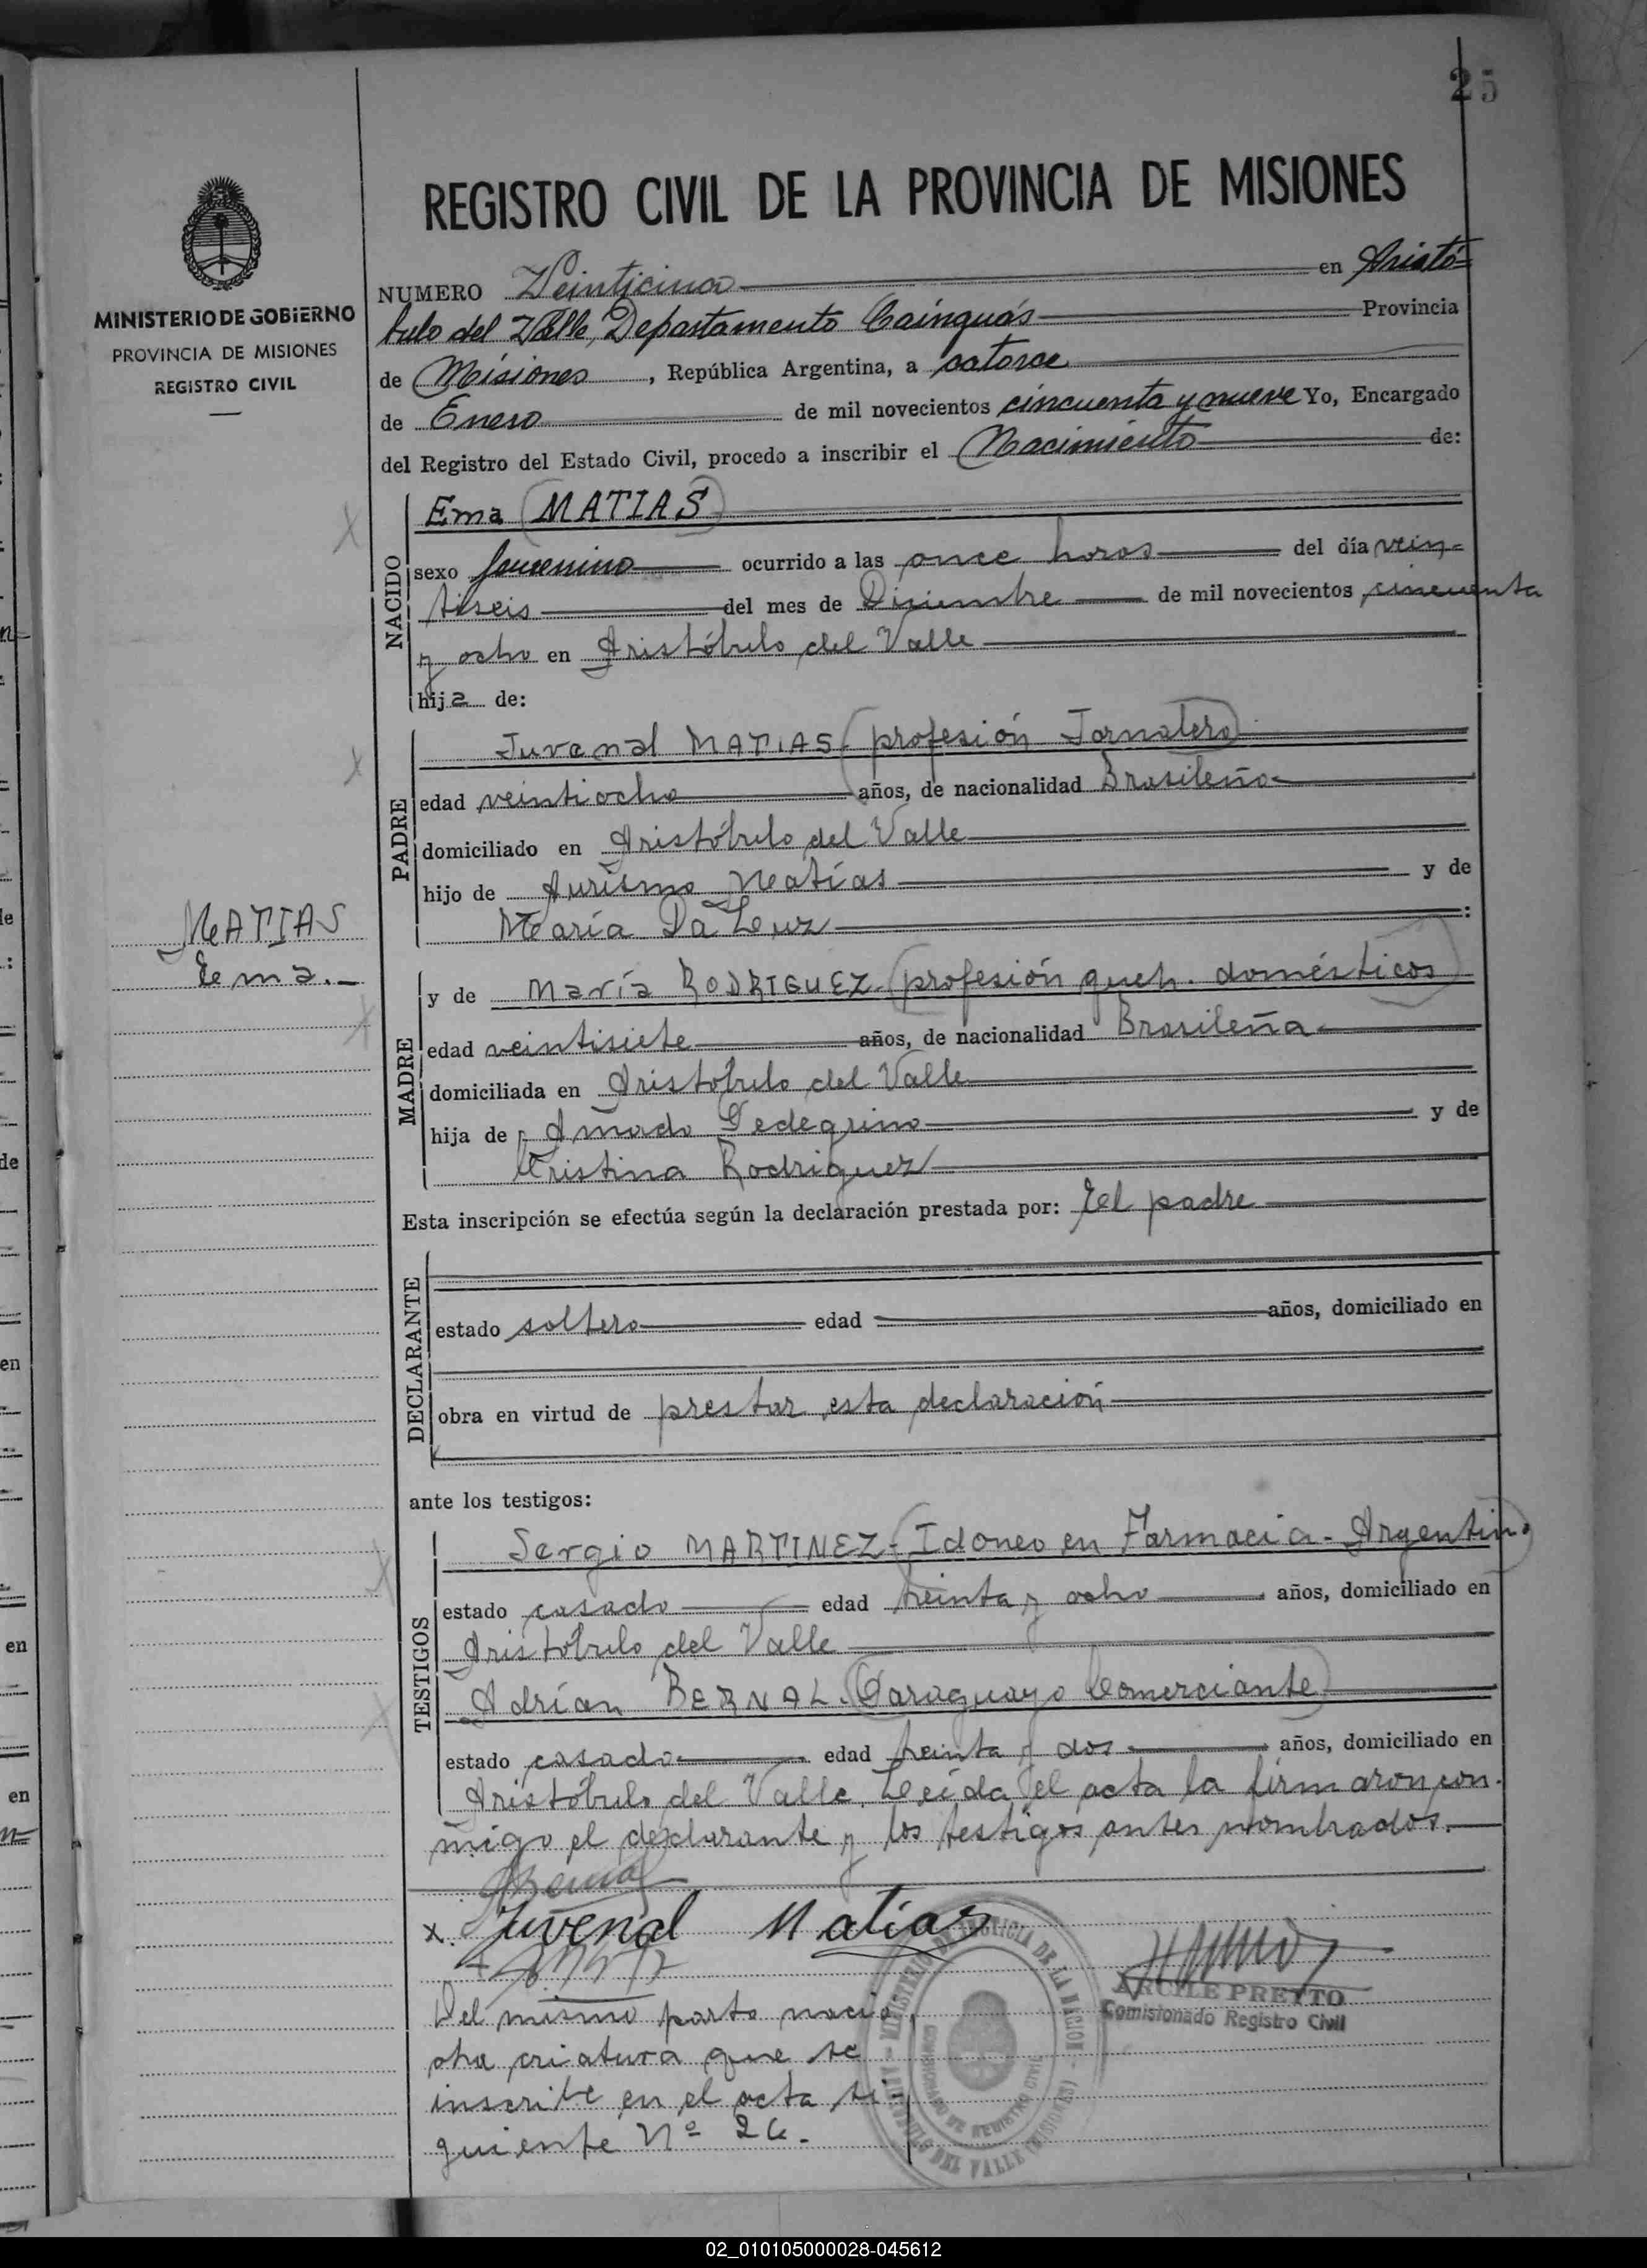 25
REGISTRO CIVIL DE LA PROVINCIA DE MISIONES
MINISTERIO DE GOBIERNO
PROVINCIA DE MISIONES
REGISTRO CIVIL
NUMERO Veinticinco en Aristó-
bulo del Valle, Departamento Cainguás Provincia
de Misiones, República Argentina, a catorce
de Enero de mil novecientos cincuenta y nueve Yo, Encargado
del Registro del Estado Civil, procedo a inscribir el Nacimiento de:
NACIDO
Ema (MATIAS)
sexo femenino ocurrido a las once horas del día vein-
tiseis del mes de Diciembre de mil novecientos cincuenta
y ocho en Aristóbulo del Valle
hija de:
PADRE
Juvenal MATIAS (profesión Jornalero)
edad veintiocho años, de nacionalidad Brasileño
domiciliado en Aristóbulo del Valle
hijo de Aurismo Matías y de
María Da Luz :
MATIAS
Ema.-
MADRE
y de María RODRIGUEZ (profesión queh. domésticos)
edad veintisiete años, de nacionalidad Brasileña
domiciliada en Aristobulo del Valle
hija de Amado y de
Cristina Rodriguez
Esta inscripción se efectúa según la declaración prestada por: El padre
DECLARANTE
estado soltero edad años, domiciliado en
obra en virtud de prestar esta declaración
ante los testigos:
TESTIGOS
Sergio MARTINEZ (Idoneo en Farmacia - Argentino)
estado casado edad treinta y ocho años, domiciliado en
Aristóbulo del Valle
Adrían BERNAL (Paraguayo Comerciante)
estado casado edad treinta y dos años, domiciliado en
Aristóbulo del Valle. Leída el acta la firmaron con-
migo el declarante y los testigos antes nombrados.
x Juvenal Matias
ARCILE PRETTO
Comisionado Registro Civil
Del mismo parto nació
otra criatura que se
inscribe en el acta si-
guiente Nº 26.
MINISTERIO DE JUSTICIA DE LA NACION
COMISIONADO DE REGISTRO CIVIL
ARISTOBULO DEL VALLE (MISIONES)
02_010105000028-045612